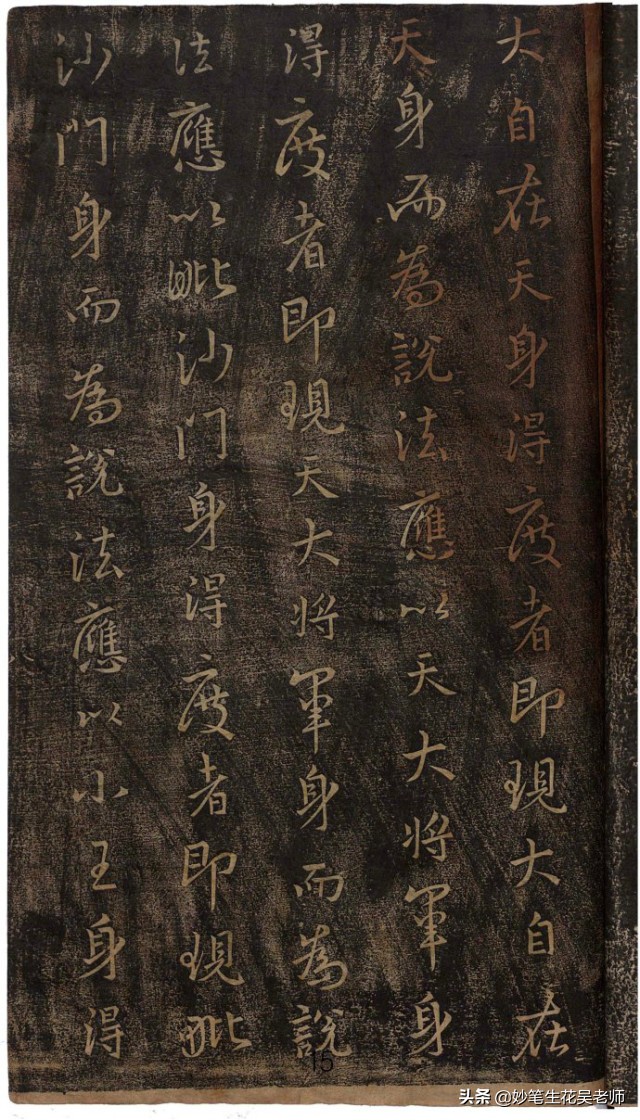 大自在天身得度者即現大自在
天身而為說法應以天大將軍身
得度者即現天大將軍身而為說
法應以毗沙門身得度者即現毗
沙門身而為說法應以小王身得
15
头条 @妙笔生花吴老师